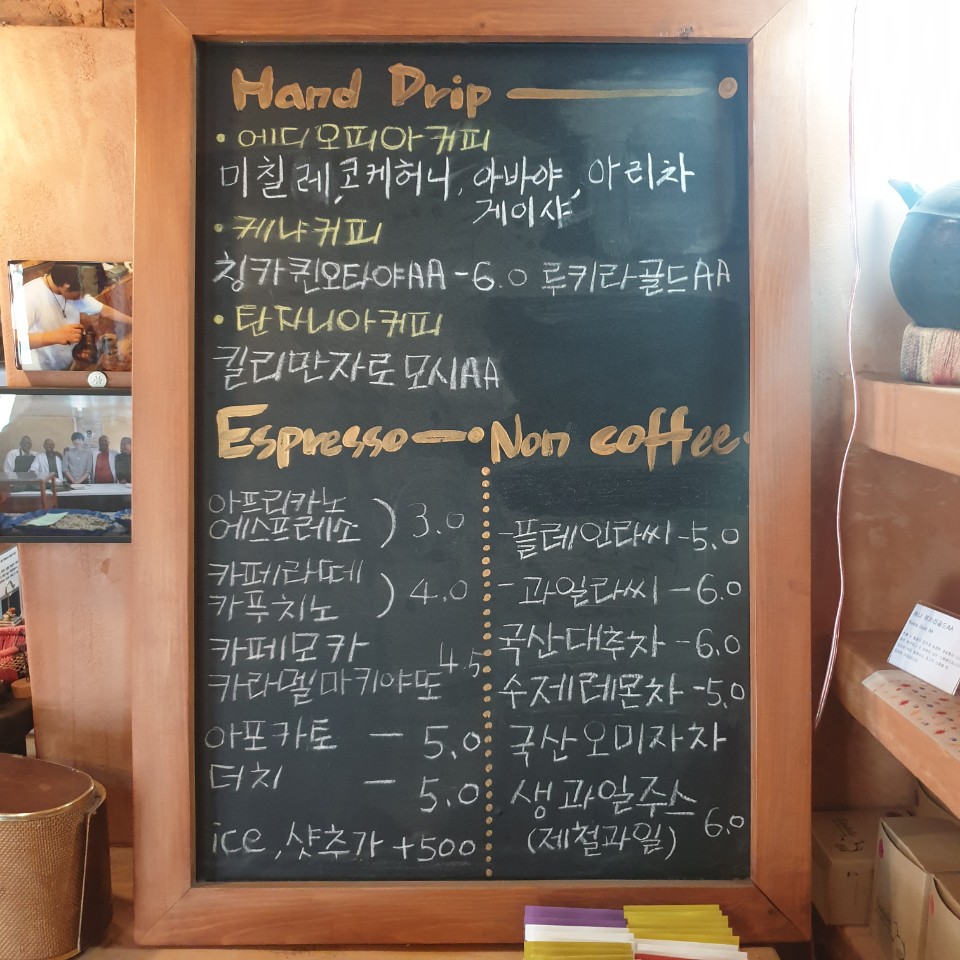 Hand Drip
• 에디오피아커피
미칠레, 코케허니, 아바야, 아리차
게이샤
• 케냐커피
칭카퀸오타야AA - 6.0 루키라골드AA
• 탄자니아커피
킬리만자로모시AA
Espresso
아프리카노
에스프레소 ) 3.0
카페라떼
카푸치노 ) 4.0
카페모카
카라멜마키야또 4.5
아포카토 - 5.0
더치 - 5.0
ice, 샷추가 +500
Non coffee
- 플레인라씨 - 5.0
- 과일라씨 - 6.0
국산대추차 - 6.0
수제레몬차 - 5.0
국산오미자차
생과일주스
(제철과일) 6.0